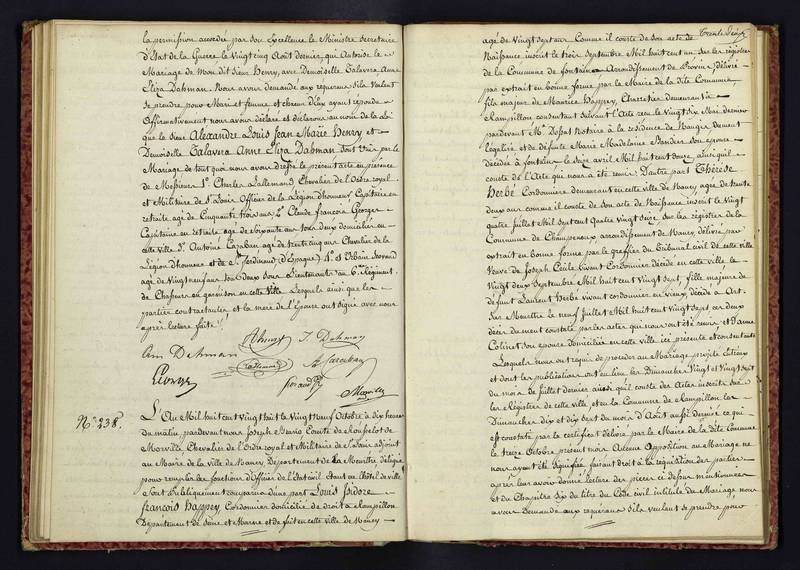 la permission accordée par Son Excellence le Ministre Secretaire
d'Etat de la Guerre le Vingt cinq Août dernier, qui Autorise le
Mariage de Mon dit Sieur Henry, avec Demoiselle Talavera Anne
Eliza Dahman. Nous avons demandé aux requerans s'ils Veulent
se prendre pour Mari et femme, et chacun d'eux ayant répondu
Affirmativement nous avons déclaré et déclarons au nom de la loi
que le Sieur Alexandre Louis Jean Marie Henry et
Demoiselle Talavera Anne Eliza Dahman Sont Unis par le
Mariage de tout quoi nous avons dressé le présent acte en présence
de Messieurs Sr. Charles Lallemand Chevalier de l'Ordre royal
et Militaire de St. Louis Officier de la Légion d'honneur Capitaine en
retraite agé de Cinquante trois ans, Sr. Claude François Georges
Capitaine en retraite agé de Soixante ans tous deux domiciliés en
cette Ville Sr. Antoine agé de trente cinq ans Chevalier de la
Légion d'honneur et de St. Ferdinand (d'Espagne) Sr. Urbain
agé de Vingt neuf ans tous deux Sous Lieutenants au 6me. Régiment
de Chasseurs en garnison en cette Ville Lesquels ainsi que les
parties contractantes, et la mere de l'Epouse ont signé avec nous
après lecture faite.
AHenry T. Dahman
Ann Dahman Lallemand
George
No. 238.
L'An Mil huit cent Vingt huit le Vingt Neuf Octobre à dix heures
du matin, pardevant nous Joseph Comte de
Morville Chevalier de l'Ordre royal et Militaire de St. Louis adjoint
au Maire de la Ville de Nancy, Département de la Meurthe, délégué
pour remplir les fonctions d'Officier de l'Etat civil étant en l'hôtel de ville
Sont publiquement comparus d'une part Louis Isidore
François Happey, Cordonnier domicilié de droit à Rampillon
Département de Seine et Marne et de fait en cette ville de Nancy
agé de Vingt sept ans Comme il conste de Son acte de
Naissance inscrit le trois Septembre Mil huit cent un Sur les régistres
de la Commune de fontains Arrondissement de Provins, délivré
par extrait en bonne forme par le Maire de la dite Commune,
fils majeur de Maurice Happey, Charretier demeurant à
Rampillon consentant Suivant l'Acte reçu le Vingt six Mai dernier
pardevant Me. Notaire à la résidence de Nangis dument
légalisé et de défunte Marie Madelaine Son épouse
décédée à fontains le Seize avril Mil huit cent douze, ainsi qu'il
conste de l'Acte qui nous a été remis. D'autre part Thérèse
Herbé Cordonnière demeurant en cette ville de Nancy agée de trente
deux ans comme il conste de Son acte de Naissance inscrit le Vingt
quatre Juillet Mil Sept cent Quatre Vingt Seize Sur les régistres de la
Commune de Champenoux, arrondissement de Nancy délivré par
extrait en bonne forme par le greffier du Tribunal civil de cette ville
Veuve de Joseph Vivant Cordonnier décédé en cette ville le
Vingt deux Septembre Mil huit cent Vingt Sept, fille majeure de
défunt Laurent Herbé vivant cordonnier en vieux, décédé à Art-
Sur-Meurthe le neuf Juillet Mil huit cent Vingt Sept, ces deux
décès dument constatés par les actes qui nous ont été remis, et d'Anne
Colinet Son épouse domiciliée en cette ville ici présente et consentante
Lesquels nous ont requis de procéder au Mariage projeté entr'eux
et dont les publications ont eu lieu les Dimanches Vingt et Vingt Sept
du mois de Juillet dernier ainsi qu'il conste des Actes inscrits Sur
les Régistres de cette ville, et en la Commune de Rampillon les
Dimanches dix et dix Sept du mois d'Août aussi dernier ce qui
est constaté par le certificat délivré par le Maire de la dite Commune
le treize Octobre présent mois Aucune Opposition au Mariage ne
nous ayant été Signifiée, faisant droit à la réquisition des parties
après leur avoir donné lecture des pieces ci dessus mentionnées
et du Chapitre Six du titre du Code civil intitulé du Mariage nous
avons Demandé aux requerans s'ils veulent se prendre pour